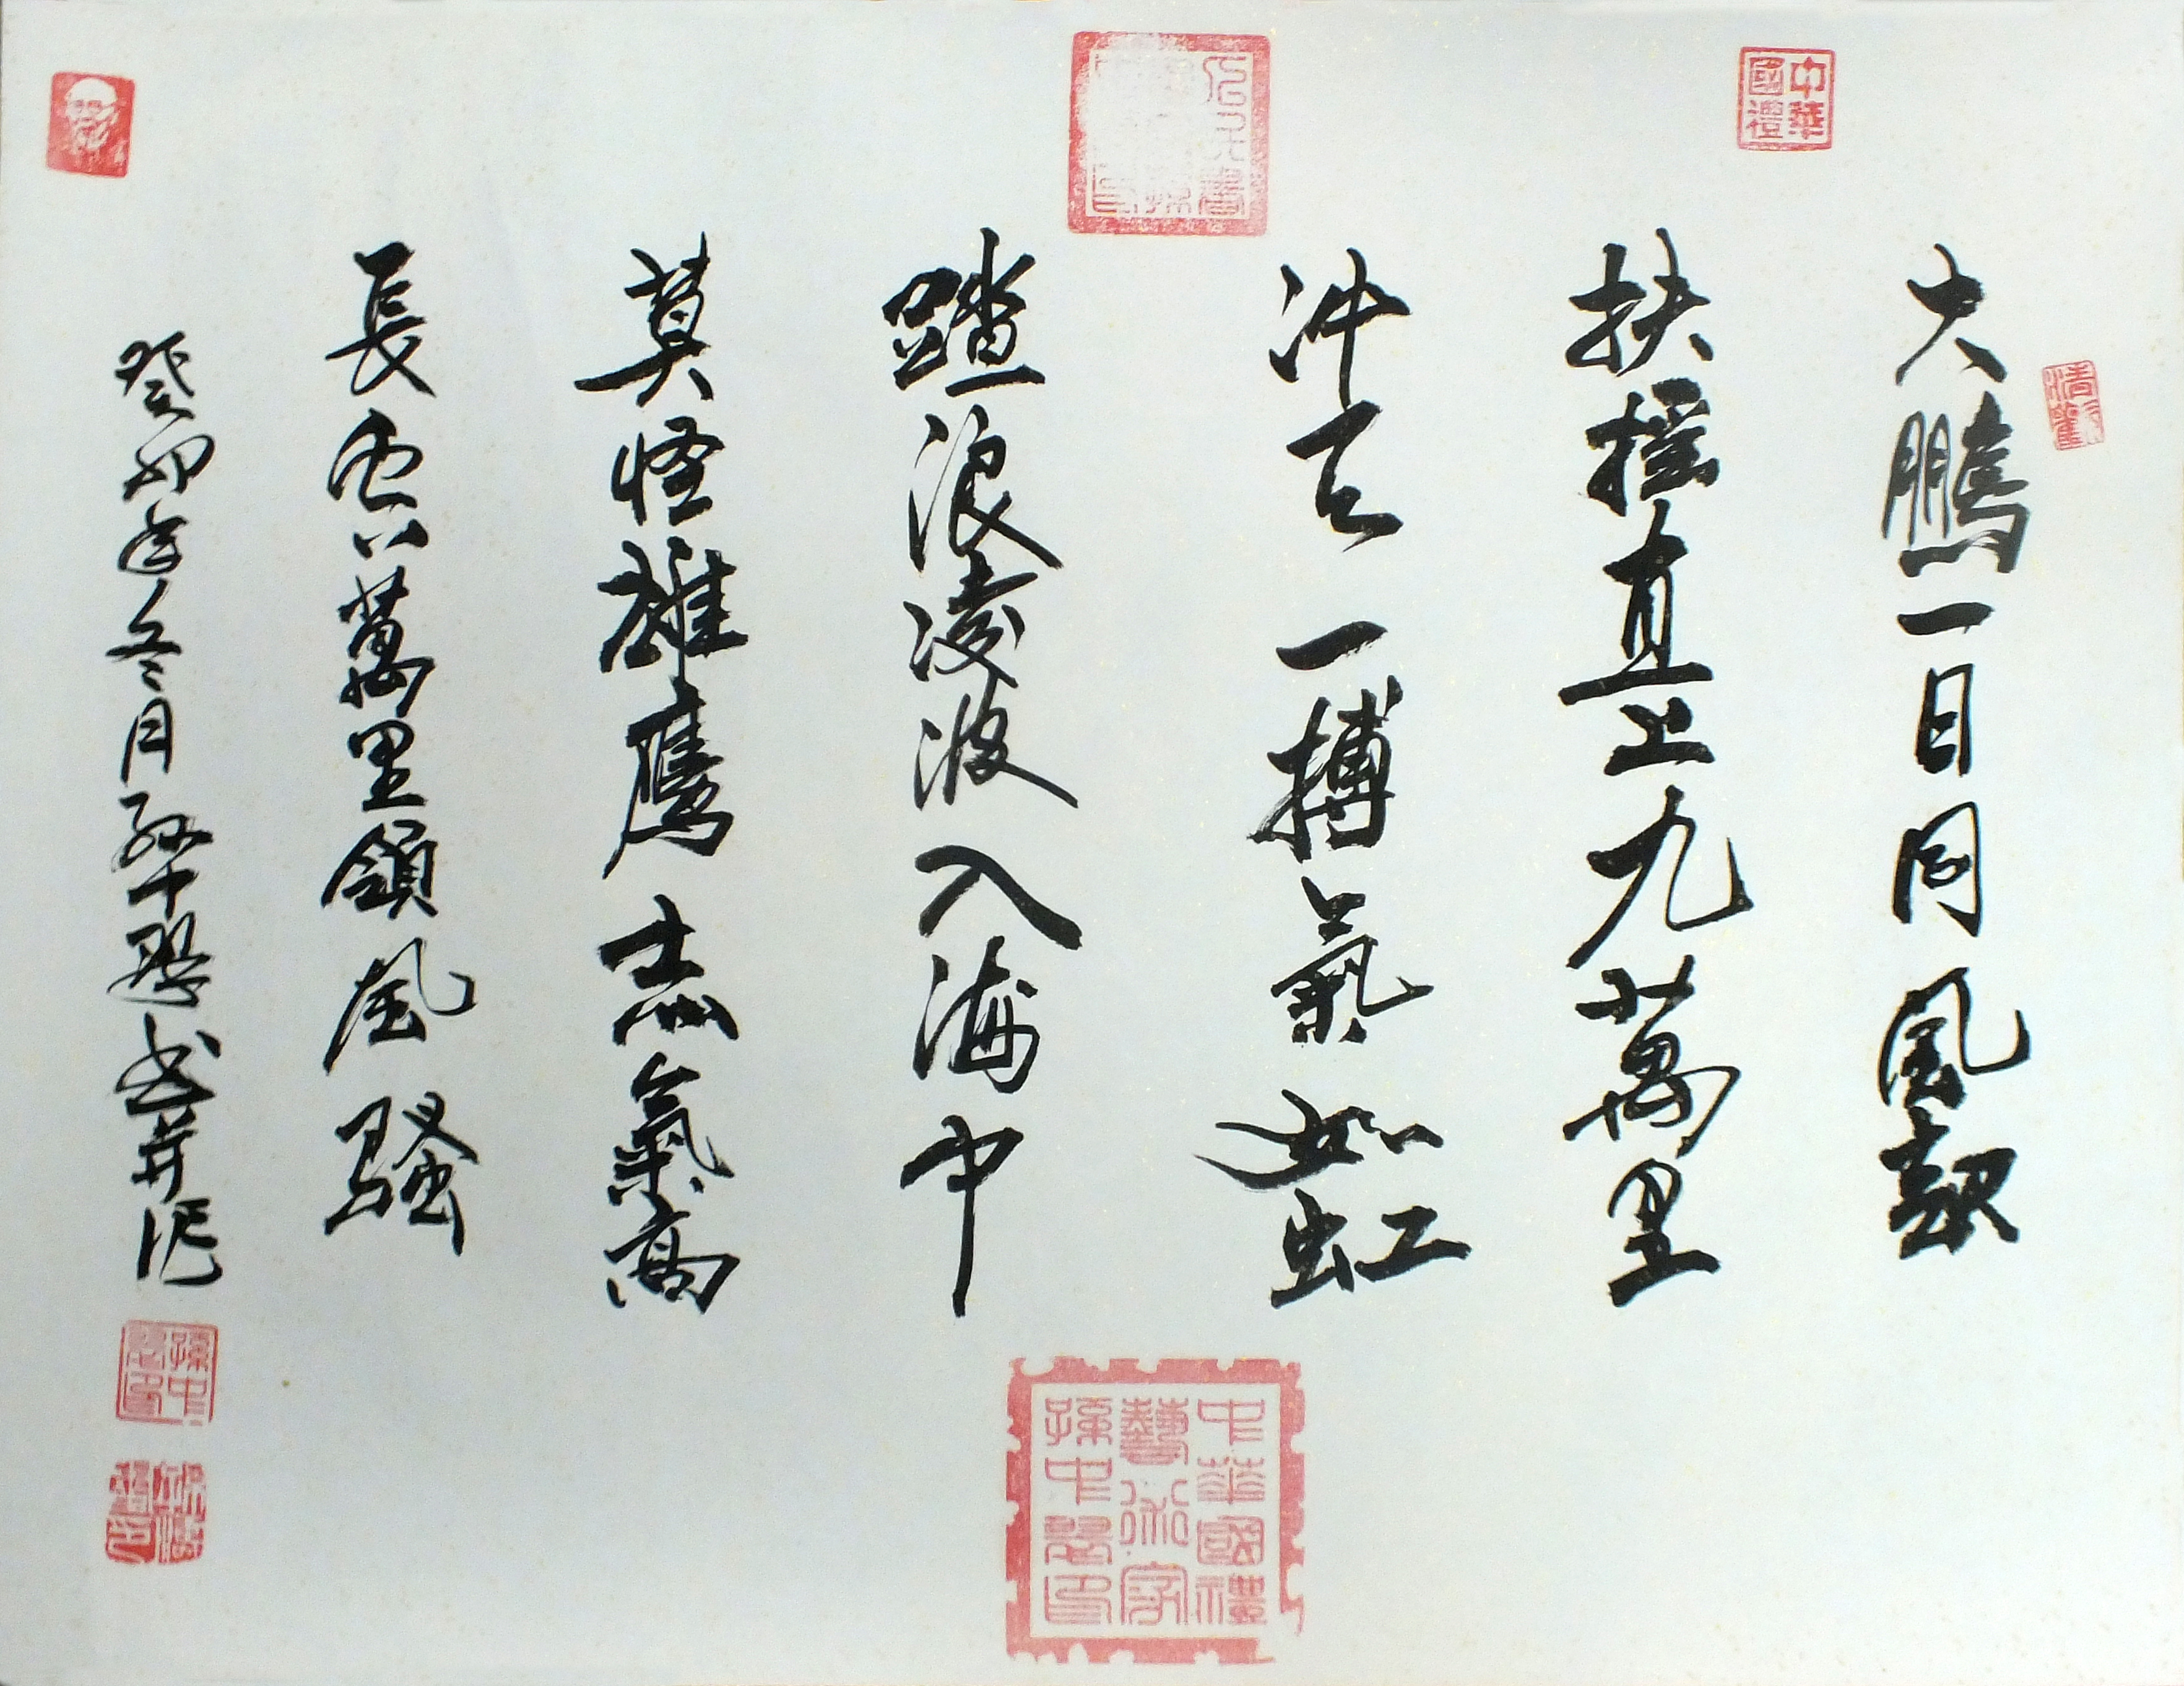 大鹏一日同風起
扶摇直上九萬里
冲天一搏氣如虹
踏浪凌波入海中
莫怪雄鹰志氣高
長空萬里領風騷
癸卯年冬月孫中 書并作
中華國禮
中華國禮
藝術家
孫中 印
孫中 印